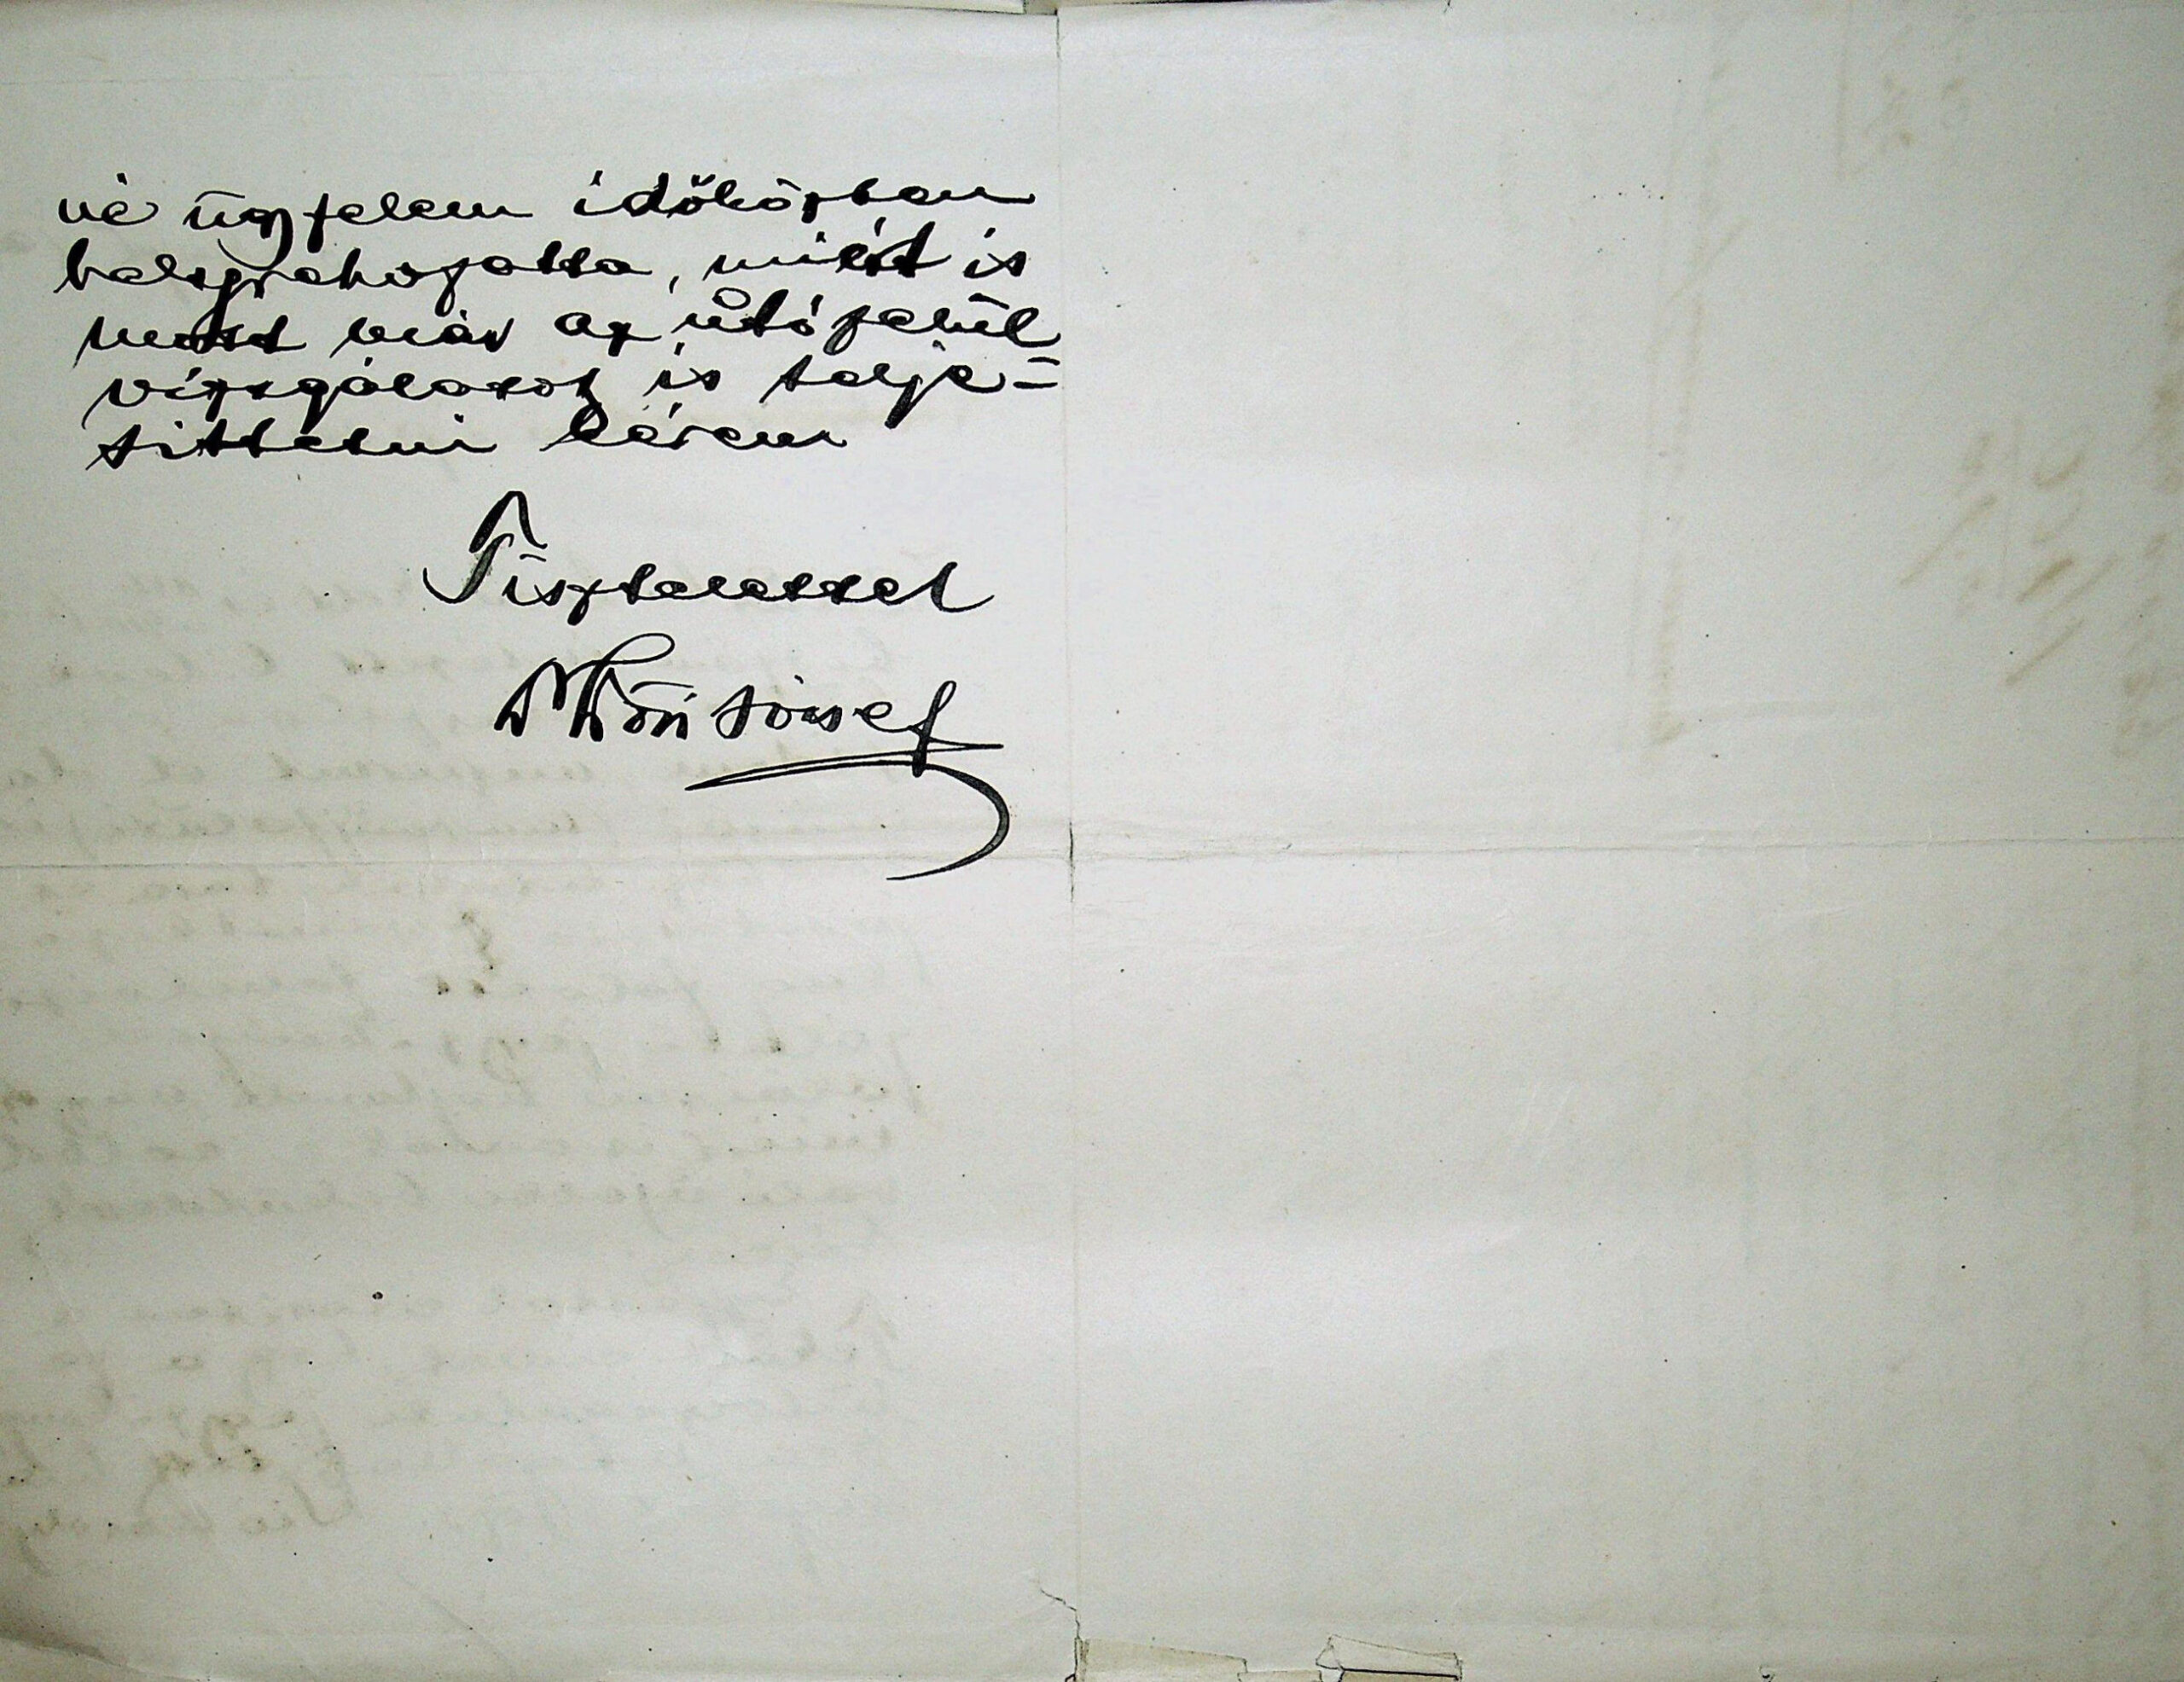 vé ügyfelem időközben
helyrehozatta, miért is
most már az utófelül
vizsgálatot is telje-
sittetni kérem
Tisztelettel
Dr Kőri József